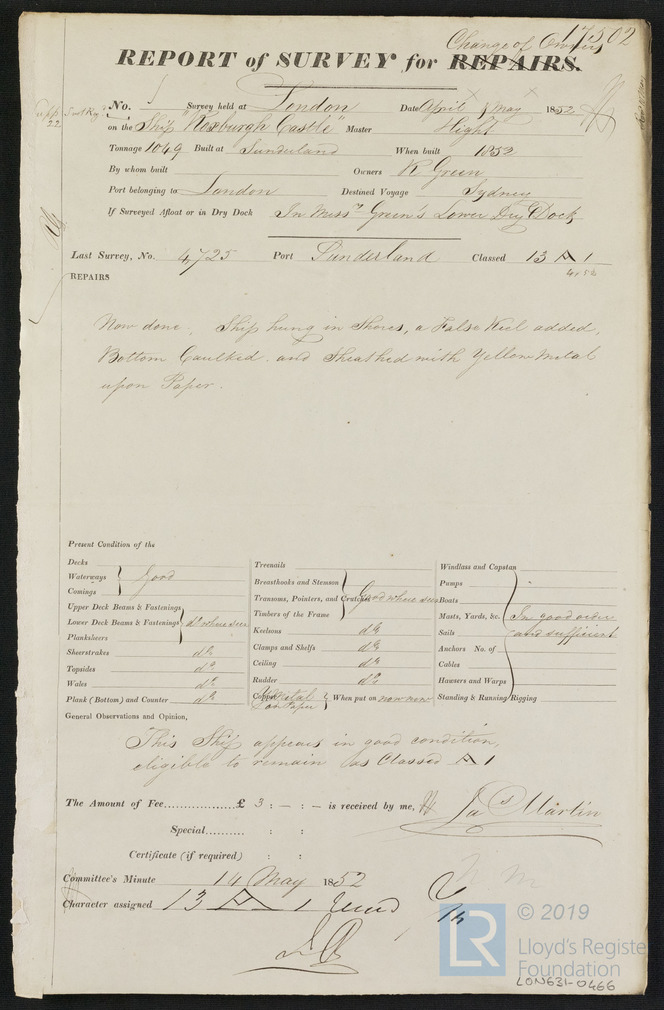 17502
Change of Owners
REPORT of SURVEY for REPAIRS.
No. Survey held at London Date April / May 1852
on the Ship "Roxburgh Castle" Master Hight
Tonnage 1049 Built at Sunderland When built 1852
By whom built Owners R Green
Port belonging to London Destined Voyage Sydney
If Surveyed Afloat or in Dry Dock In Messrs Green's Lower Dry Dock
Last Survey, No. 4725 Port Sunderland Classed 13 A 1
4.52
REPAIRS
Now done. Ship hung in Shores, a False Keel added,
Bottom Caulked and Sheathed with Yellow Metal
upon Paper.
Present Condition of the
Decks
Waterways
Comings
Good
Upper Deck Beams & Fastenings
Lower Deck Beams & Fastenings
Planksheers
do where seen
Sheerstrakes do
Topsides do
Wales do
Plank (Bottom) and Counter do
Treenails
Breasthooks and Stemson
Transoms, Pointers, and Crutches
Timbers of the Frame
Good where seen
Keelsons do
Clamps and Shelfs do
Ceiling do
Rudder do
Copper Y Metal on Paper When put on now new
Windlass and Capstan
Pumps
Boats
Masts, Yards, &c.
Sails
Anchors No. of
Cables
Hawsers and Warps
Standing & Running Rigging
In good order
and sufficient
General Observations and Opinion,
This Ship appears in good condition,
eligible to remain as Classed A 1
The Amount of Fee £ 3 : — : — is received by me,
Jas Martin
Special : :
Certificate (if required) : :
Committee's Minute 14 May 1852
Character assigned 13 A 1
© 2019
LR Lloyd's Register
Foundation
LON631-0466